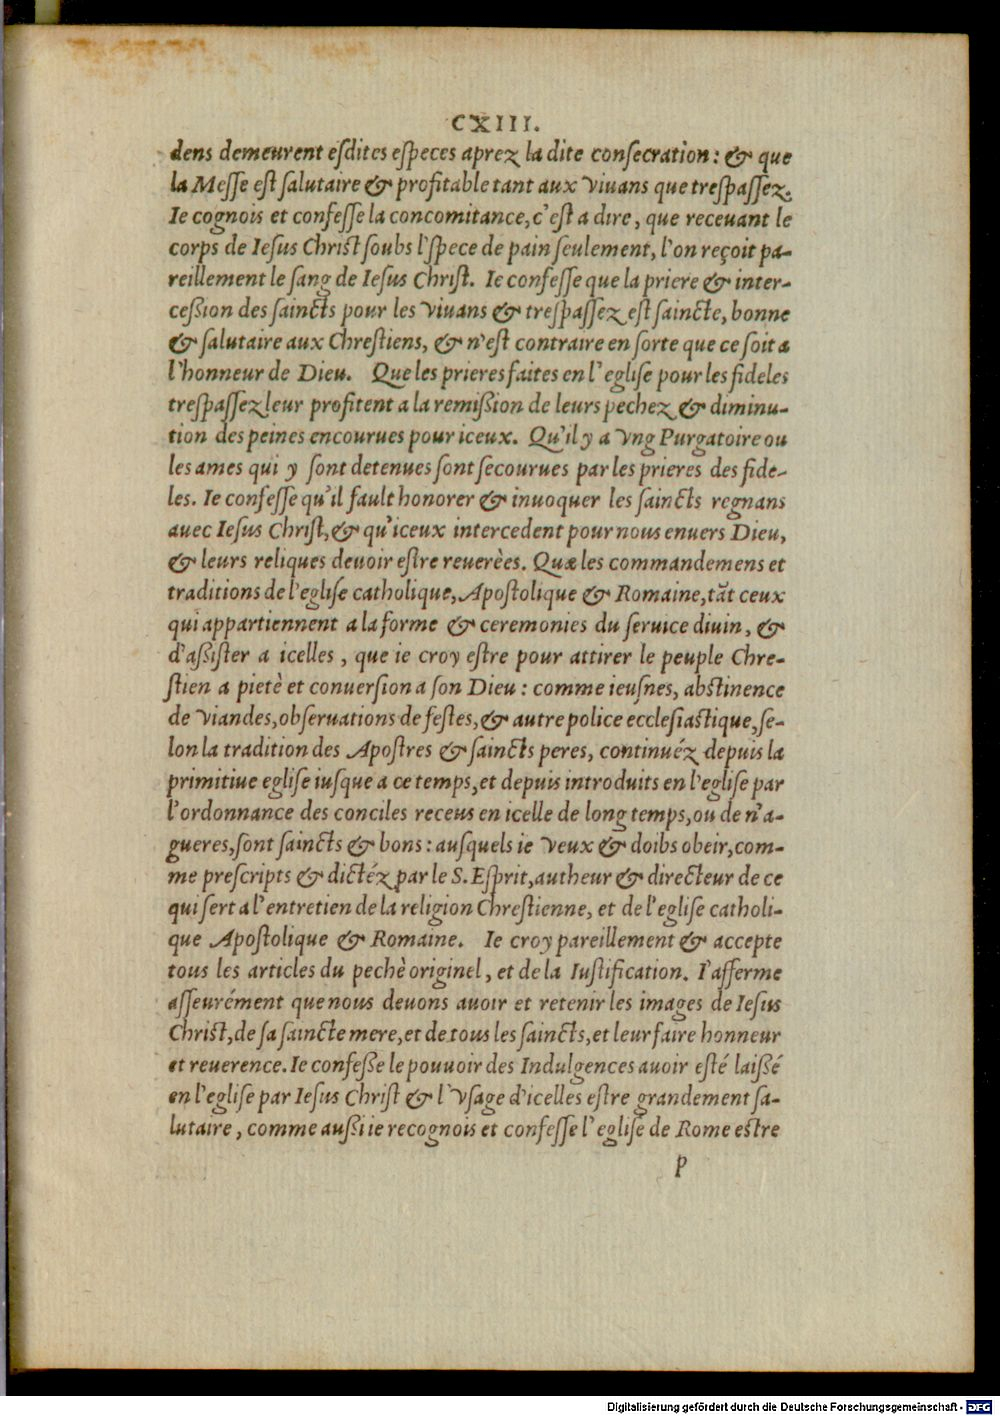 CXIII.
dens demeurent esdites especes aprez la dite consecration : & que
la Messe est salutaire & profitable tant aux viuans que trespassez.
Ie cognois et confesse la concomitance, c'est a dire, que receuant le
corps de Iesus Christ soubs l'spece de pain seulement, l'on reçoit pa-
reillement le sang de Iesus Christ. Ie confesse que la priere & inter-
cession des saincts pour les viuans & trespassez est saincte, bonne
& salutaire aux Chrestiens, & n'est contraire en sorte que ce soit a
l'honneur de Dieu. Que les prieres faites en l'eglise pour les fideles
trespassez leur profitent a la remission de leurs pechez & diminu-
tion des peines encourues pour iceux. Qu'il y a vng Purgatoire ou
les ames qui y sont detenues sont secourues par les prieres des fide-
les. Ie confesse qu'il fault honorer & inuoquer les saincts regnans
auec Iesus Christ, & qu'iceux intercedent pour nous enuers Dieu,
& leurs reliques deuoir estre reuerèes. Quæ les commandemens et
traditions de l'eglise catholique, Apostolique & Romaine, tãt ceux
qui appartiennent a la forme & ceremonies du seruice diuin, &
d'assister a icelles, que ie croy estre pour attirer le peuple Chre-
stien a pietè et conuersion a son Dieu : comme ieusnes, abstinence
de viandes, obseruations de festes, & autre police ecclesiastique, se-
lon la tradition des Apostres & saincts peres, continuéz depuis la
primitiue eglise iusque a ce temps, et depuis introduits en l'eglise par
l'ordonnance des conciles receus en icelle de long temps, ou de n'a-
gueres, sont saincts & bons : ausquels ie veux & doibs obeir, com-
me prescripts & dictéz par le S. Esprit, autheur & directeur de ce
qui sert a l'entretien de la religion Chrestienne, et de l'eglise catholi-
que Apostolique & Romaine. Ie croy pareillement & accepte
tous les articles du pechè originel, et de la Iustification. I'afferme
asseurément que nous deuons auoir et retenir les images de Iesus
Christ, de sa saincte mere, et de tous les saincts, et leur faire honneur
et reuerence. Ie confesse le pouuoir des Indulgences auoir esté laissé
en l'eglise par Iesus Christ & l'vsage d'icelles estre grandement sa-
lutaire, comme aussi ie recognois et confesse l'eglise de Rome estre
p
Digitalisierung gefördert durch die Deutsche Forschungsgemeinschaft - DFG